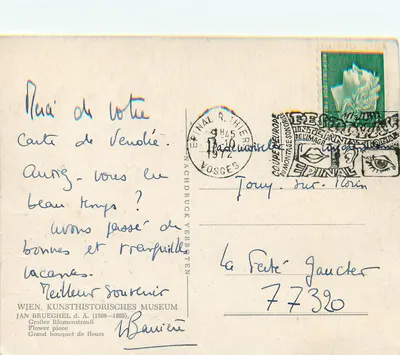 Merci de votre
carte de Vendée.
Aurez-vous eu
beau temps ?
Avons passé de
bonnes et tranquilles
vacances.
Meilleur souvenir
WIEN, KUNSTHISTORISCHES MUSEUM
JAN BRUEGHEL d. Ä. (1568—1625),
Großer Blumenstrauß
Flower piece
Grand bouquet de fleurs
NACHDRUCK VERBOTEN
EPINAL R. THIERS
1845
17-10
1972
VOSGES
COUPE D'EUROPE
DU MONTAGE SONORISE
FESTIVAL
INTERNATIONAL
DE L'IMAGE
EPINAL
Mademoiselle
Jouy-sur-Morin
La Ferté Gaucher
77320